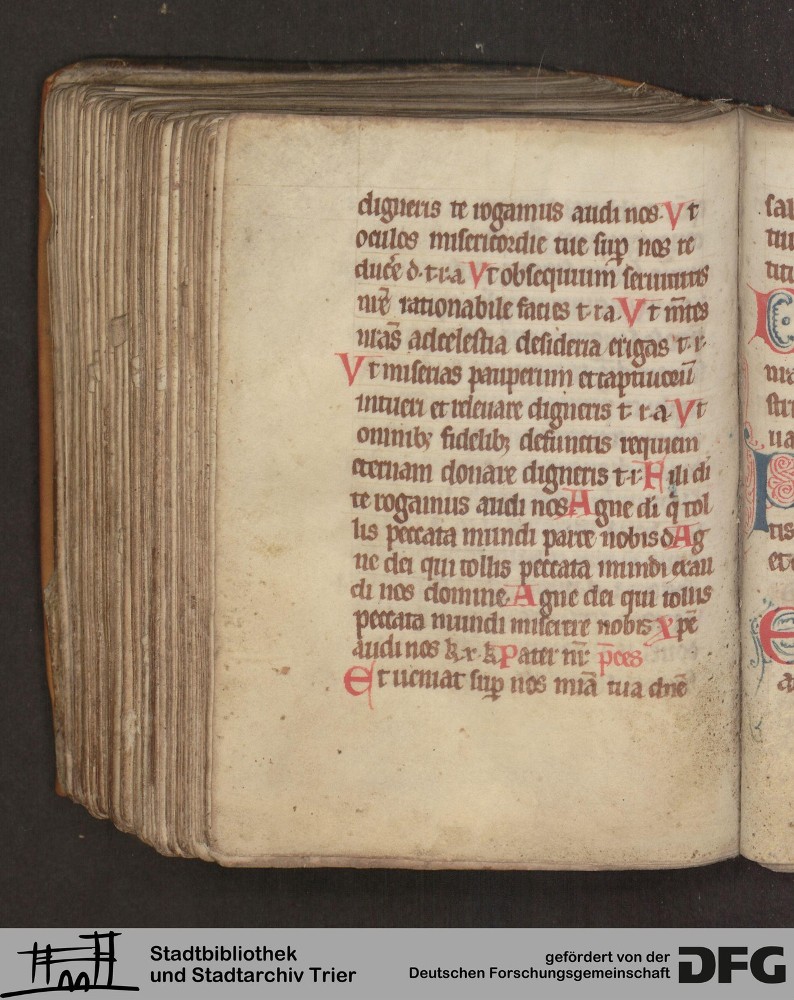 digneris te rogamus audi nos. Vt
oculos misericordie tue sup nos re
ducẽ d. t. r. a Vt obsequium seruitutis
nr̃e rationabile facies t. r a. V t m̃tes
nr̃as ad celestia desideria erigas t. r.
Vt miserias pauperum et captiuoru
intueri et releuare digneris t. r. a. Vt
omnib; fidelib; defunctis requiem
eternam donare digneris t. r. Fili di
te rogamus audi nos Agne di q̃ tol
lis peccata mundi parce nobis d Ag
ne dei qui tollis peccata mundi exau
di nos domine. Agne dei qui tollis
peccata mundi miserere nobis xpe
audi nos k. x. k Pater nr̃. p̃ces
Et ueniat sup nos mĩa tua dñe
sal
Stadtbibliothek
und Stadtarchiv Trier
gefördert von der
Deutschen Forschungsgemeinschaft
DFG